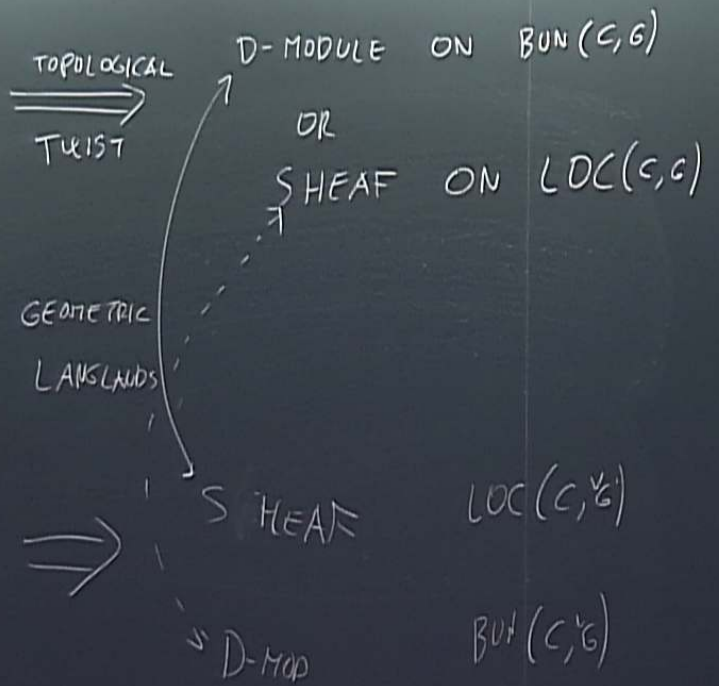 TOPOLOGICAL
TWIST
D-MODULE ON BUN(C,G)
OR
SHEAF ON LOC(C,G)
GEOMETRIC
LANGLANDS
SHEAF LOC(C,ᵛG)
D-MOD BUN(C,ᵛG)